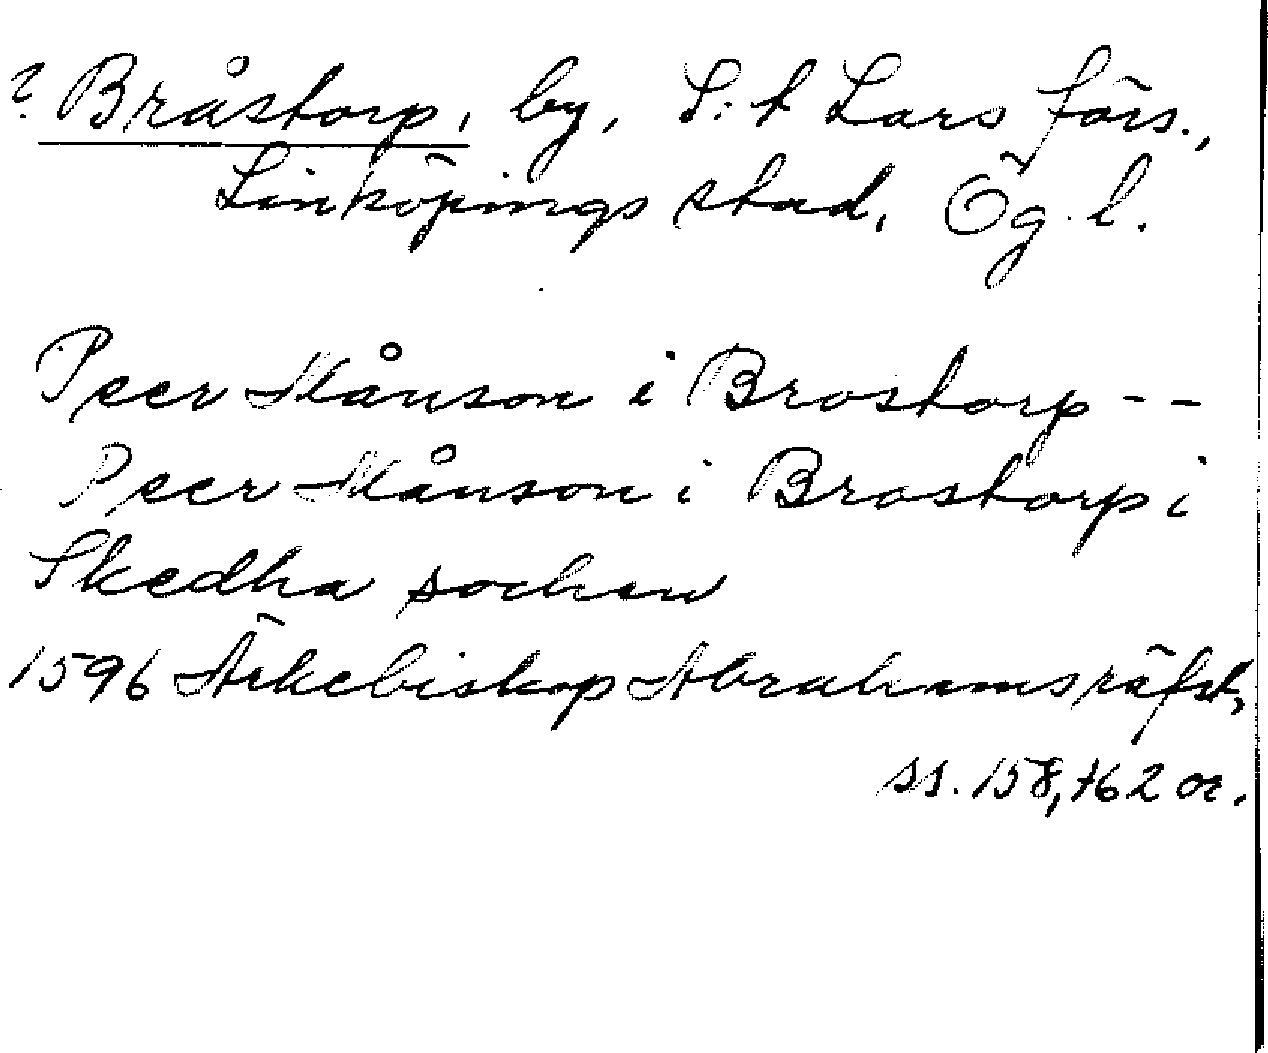 ? Bråstorp, by, S:t Lars förs.,
Linköpings stad, Ög. l.
Peer Månson i Brostorp --
Peer Månson i Brostorp i
Skedha sochen
1596 Ärkebiskop Abrahams räfst,
ss. 158, 162 or.